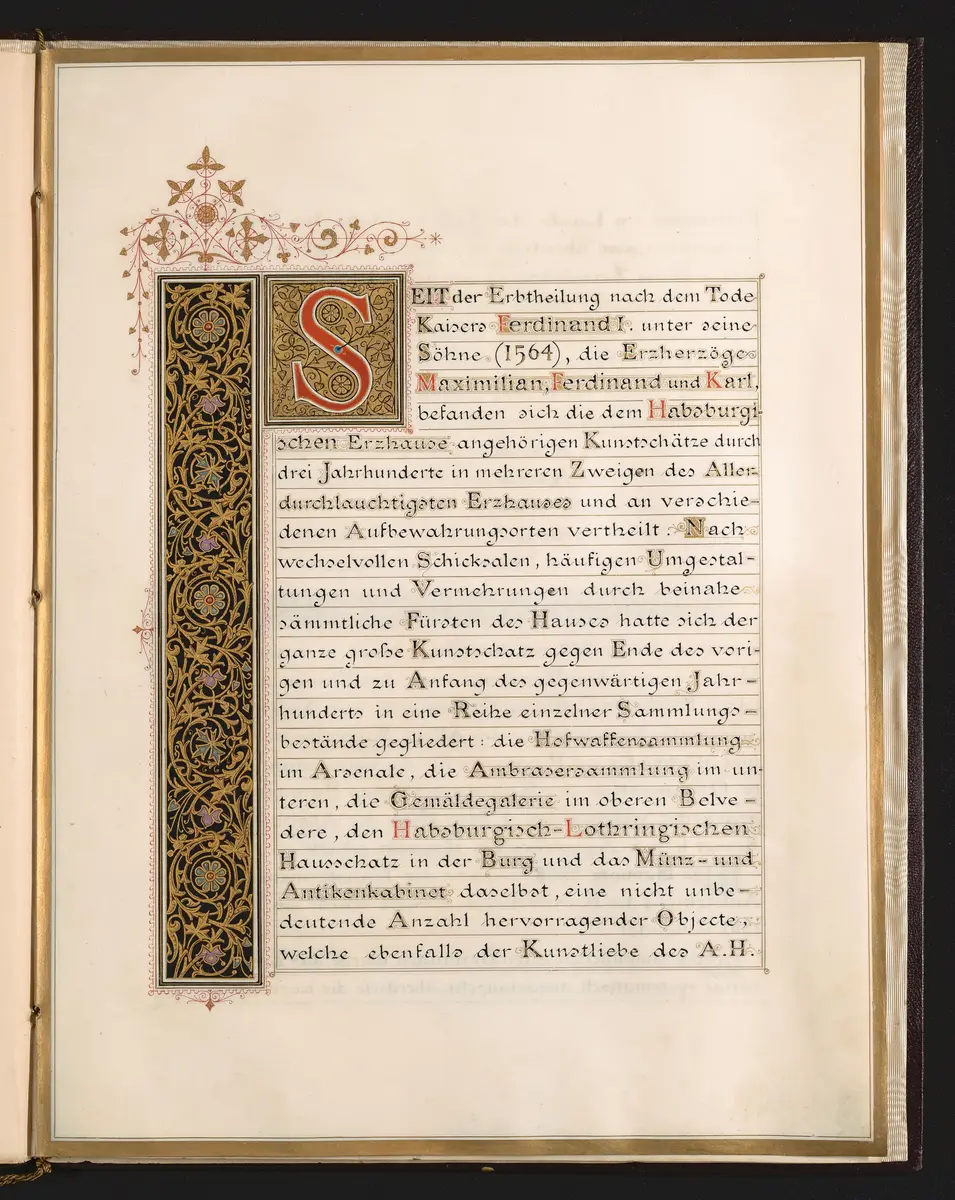 SEIT der Erbtheilung nach dem Tode
Kaisers Ferdinand I. unter seine
Söhne (1564), die Erzherzöge
Maximilian, Ferdinand und Karl,
befanden sich die dem Habsburgi-
schen Erzhause angehörigen Kunstschätze durch
drei Jahrhunderte in mehreren Zweigen des Aller-
durchlauchtigsten Erzhauses und an verschie-
denen Aufbewahrungsorten vertheilt. Nach
wechselvollen Schicksalen, häufigen Umgestal-
tungen und Vermehrungen durch beinahe
sämmtliche Fürsten des Hauses hatte sich der
ganze große Kunstschatz gegen Ende des vori-
gen und zu Anfang des gegenwärtigen Jahr-
hunderts in eine Reihe einzelner Sammlungs-
bestände gegliedert: die Hofwaffensammlung
im Arsenale, die Ambrasersammlung im un-
teren, die Gemäldegalerie im oberen Belve-
dere, den Habsburgisch-Lothringischen
Hausschatz in der Burg und das Münz- und
Antikenkabinet daselbst, eine nicht unbe-
deutende Anzahl hervorragender Objecte,
welche ebenfalls der Kunstliebe des A.H.